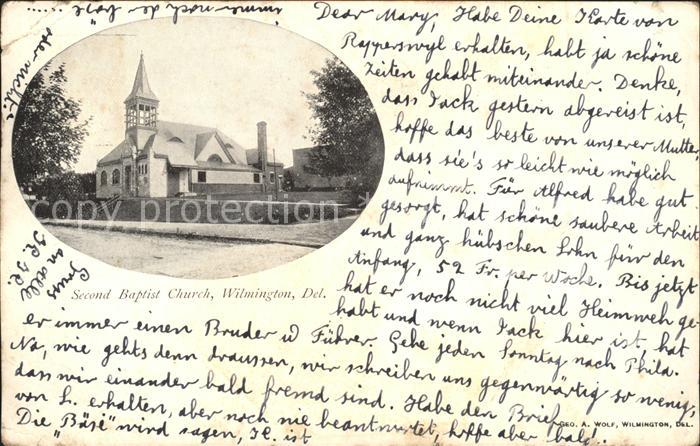 Dear Mary, Habe Deine Karte von
Rapperswyl erhalten, habt ja schöne
Zeiten gehabt miteinander. Denke,
dass Jack gestern abgereist ist,
hoffe das beste von unserer Mutter
dass sie's so leicht wie möglich
aufnimmt. Für Alfred habe gut
gesorgt, hat schöne saubere Arbeit
und ganz hübschen Lohn für den
Anfang, 52 Fr. per Woche. Bis jetzt
hat er noch nicht viel Heimweh ge-
habt und wenn Jack hier ist, hat
er immer einen Bruder u Führer. Gehe jeden Sonntag nach Phila.
Na, wie gehts denn draussen, wir schreiben uns gegenwärtig so wenig,
dass wir einander bald fremd sind. Habe den Brief
von L. erhalten, aber noch nie beantwortet, hoffe aber bald.
Die "Bäse" wird sagen, K. ist
immer noch de
oder nicht?
Gruss
an alle
copy protection
Second Baptist Church, Wilmington, Del.
GEO. A. WOLF, WILMINGTON, DEL.